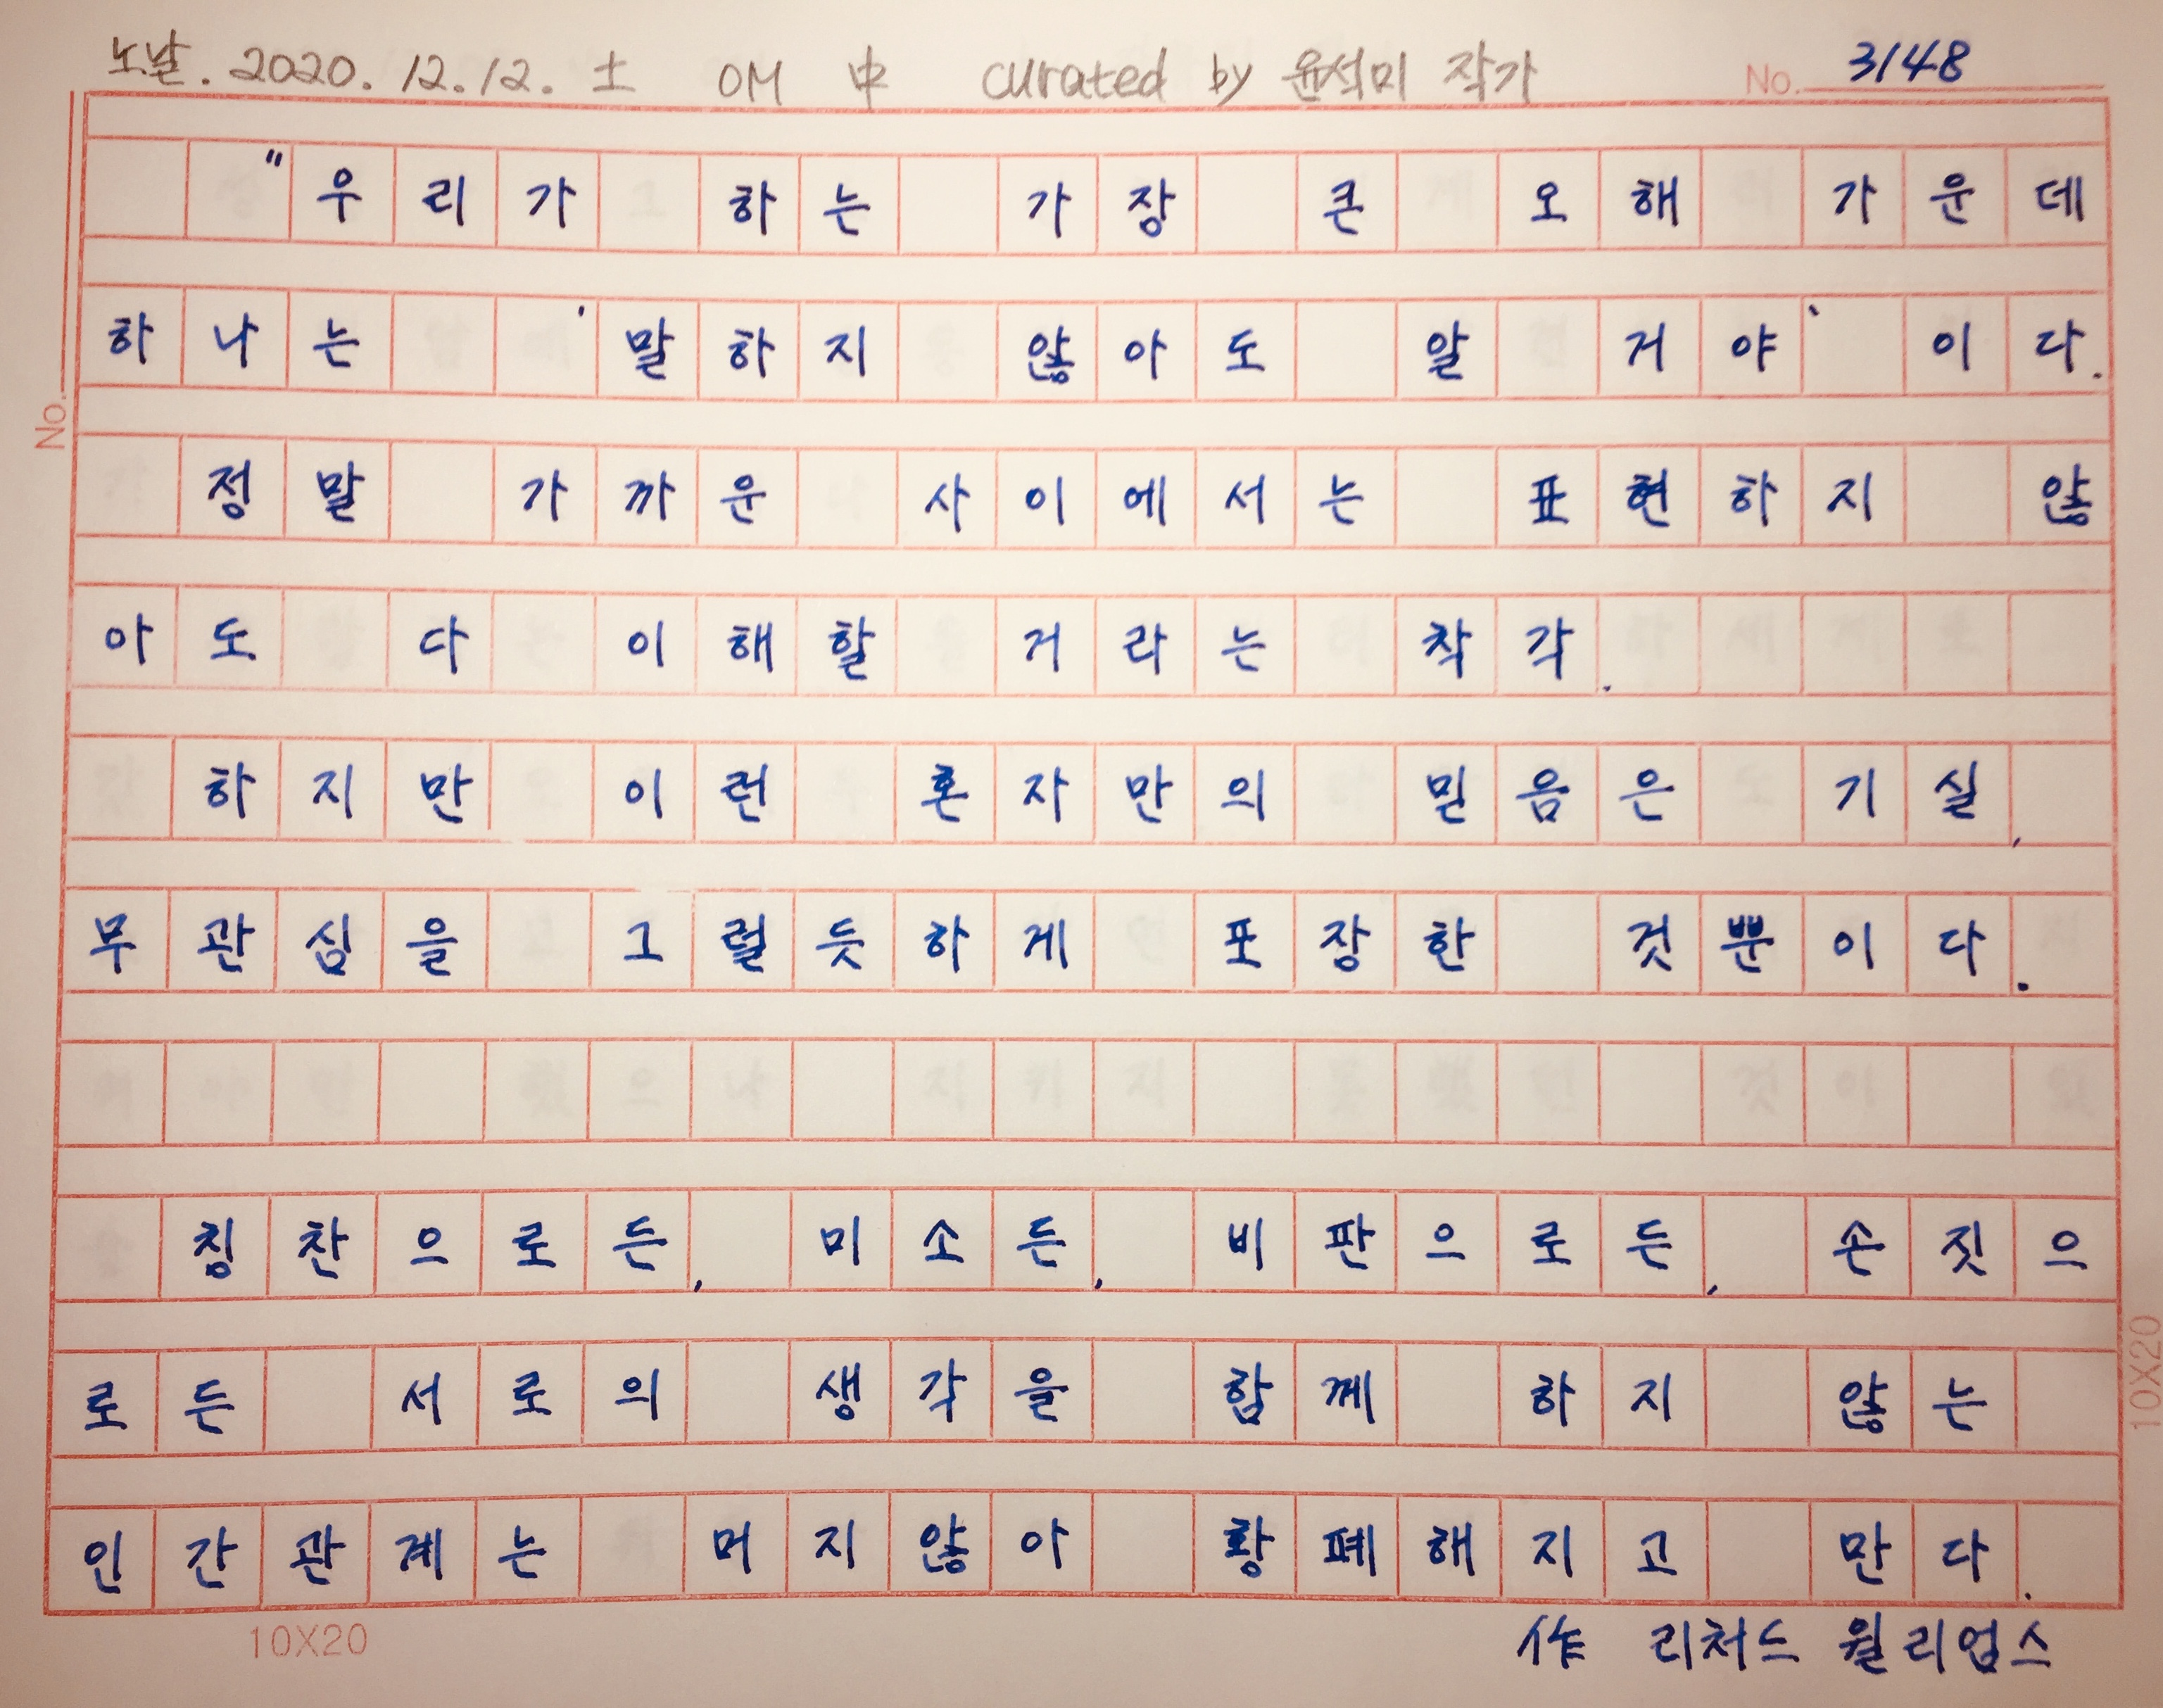 노날. 2020. 12. 12. 土 OM 中 curated by 윤석미 작가 No. 3148
"우리가 하는 가장 큰 오해 가운데
하나는 '말하지 않아도 알 거야' 이다.
정말 가까운 사이에서는 표현하지 않
아도 다 이해할 거라는 착각.
하지만 이런 혼자만의 믿음은 기실,
무관심을 그럴듯하게 포장한 것뿐이다.
칭찬으로든, 미소든, 비판으로든, 손짓으
로든 서로의 생각을 함께 하지 않는
인간관계는 머지않아 황폐해지고 만다.
作 리처드 윌리엄스
No.
10X20
10X20